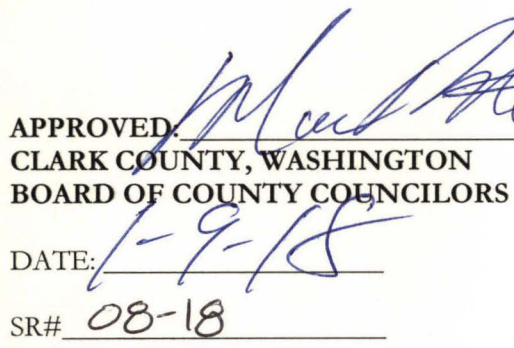 APPROVED:
CLARK COUNTY, WASHINGTON
BOARD OF COUNTY COUNCILORS
DATE: 1-9-18
SR# 08-18